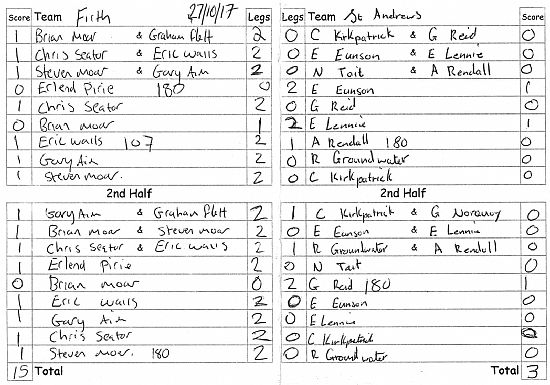 Score Team Firth 27/10/17 Legs Legs Team St Andrews Score
1 Brian Moar & Graham Flett 2 0 C Kirkpatrick & G Reid 0
1 Chris Seator & Eric Walls 2 0 E Eunson & E Lennie 0
1 Steven Moar & Gary Aim 2 0 N Tait & A Rendall 0
0 Erlend Pirie 180 0 2 E Eunson 1
1 Chris Seator 2 0 G Reid 0
0 Brian Moar 1 2 E Lennie 1
1 Eric Walls 107 2 1 A Rendall 180 0
1 Gary Aim 2 0 R Groundwater 0
1 Steven Moar. 2 0 C Kirkpatrick 0
2nd Half 2nd Half
1 Gary Aim & Graham Flett 2 1 C Kirkpatrick & G Norquoy 0
1 Brian Moar & Steven Moar 2 0 E Eunson & E Lennie 0
1 Chris Seator & Eric Walls 2 1 R Groundwater & A Rendall 0
1 Erlend Pirie 2 0 N Tait 0
0 Brian Moar 0 2 G Reid 180 1
1 Eric Walls 2 0 E Eunson 0
1 Gary Aim 2 0 E Lennie 0
1 Chris Seator 2 0 C Kirkpatrick 0
1 Steven Moar. 180 2 0 R Groundwater 0
15 Total Total 3